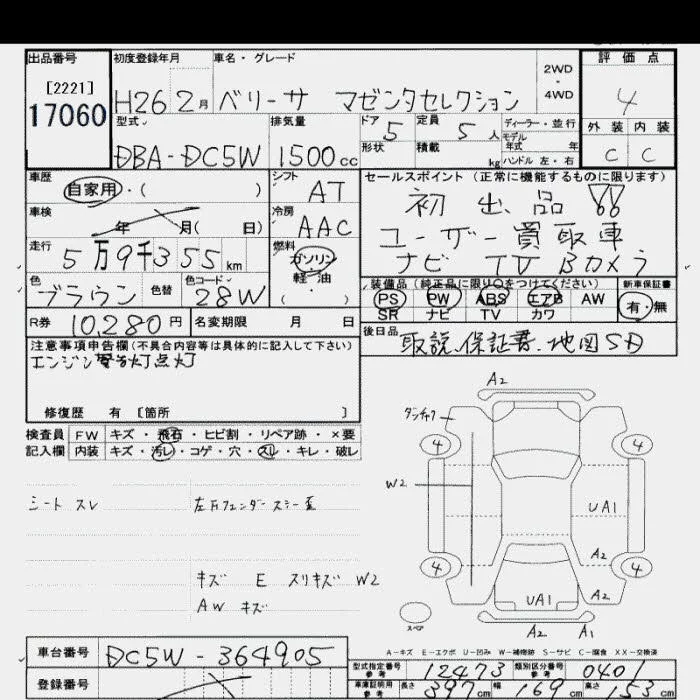 出品番号 初度登録年月 車名・グレード 2WD・4WD 評価点
[2221]
17060 H26 2月 ベリーサ マゼンタセレクション 4
型式 排気量 ドア 5 定員 5人 ディーラー・並行 外装 内装
DBA-DC5W 1500cc 形状 積載 kg モデル年式 年 ハンドル 左・右 C C
車歴 シフト セールスポイント (正常に機能するものに限ります)
自家用・( ) AT 初出品!!
車検 年 月( 日) 冷房 AAC ユーザー買取車
走行 燃料 ナビ TV Bカメラ
5万9千355km ガソリン
軽・油
( )
色 色替 色コード 装備品(純正品に限り○をつけてください) 新車保証書
ブラウン 28W PS PW ABS エアB AW 有・無
SR ナビ TV カワ
R券 10,280円 名変期限 月 日 後日品 取説、保証書、地図SD
注意事項申告欄(不具合内容等は具体的に記入して下さい)
エンジン警告灯点灯
修復歴 有 [箇所 ]
検査員 FW キズ・飛石・ヒビ割・リペア跡・×要
記入欄 内装 キズ・汚レ・コゲ・穴・スレ・キレ・破レ
シート スレ
キズ E スリキズ W2
AW キズ
A2
4 4
W2 UA1
A2
4 4
UA1 A2
スペア
A2 A1
A-キズ E-エクボ U-凹み W-補修跡 S-サビ C-腐食 XX-交換済
車台番号 DC5W-364905
登録番号
型式指定番号 参考 12473 類別区分番号 参考 0401
車庫証明用 参考 長さ 397cm 幅 169cm 高さ 53cm